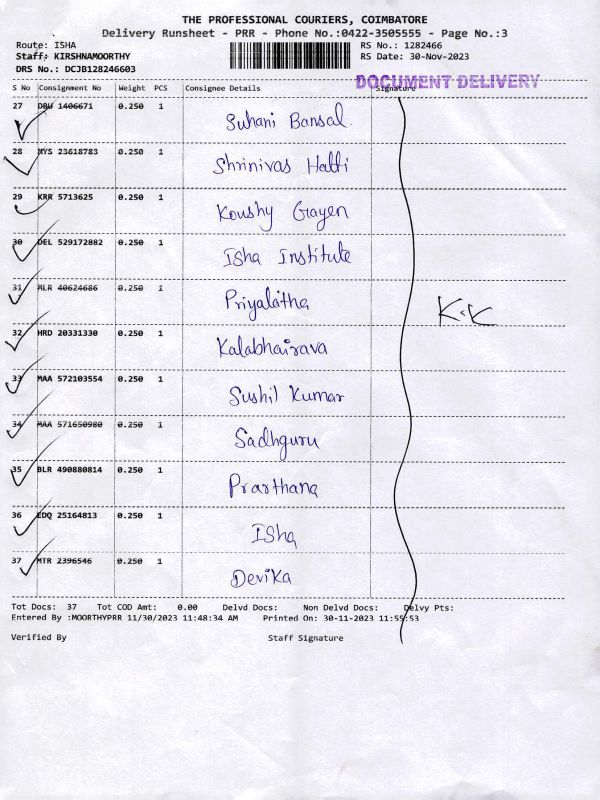 THE PROFESSIONAL COURIERS, COIMBATORE
Delivery Runsheet - PRR - Phone No.:0422-3505555 - Page No.:3
Route: ISHA RS No.: 1282466
Staff: KIRSHNAMOORTHY RS Date: 30-Nov-2023
DRS No.: DCJB128246603
DOCUMENT DELIVERY
S No Consignment No Weight PCS Consignee Details Signature
27 DBU 1406671 0.250 1 Suhani Bansal.
28 MYS 23618783 0.250 1 Shrinivas Hatti
29 KRR 5713625 0.250 1 Koushy Gayen
30 DEL 529172882 0.250 1 Isha Institute
31 MLR 40624686 0.250 1 Priyalatha
32 HRD 20331330 0.250 1 Kalabhairava
33 MAA 572103554 0.250 1 Sushil Kumar
34 MAA 571650980 0.250 1 Sadhguru
35 BLR 490880814 0.250 1 Prarthana
36 EDQ 25164813 0.250 1 Isha
37 MTR 2396546 0.250 1 Devika
Tot Docs: 37 Tot COD Amt: 0.00 Delvd Docs: Non Delvd Docs: Delvy Pts:
Entered By :MOORTHYPRR 11/30/2023 11:48:34 AM Printed On: 30-11-2023 11:55:53
Verified By Staff Signature